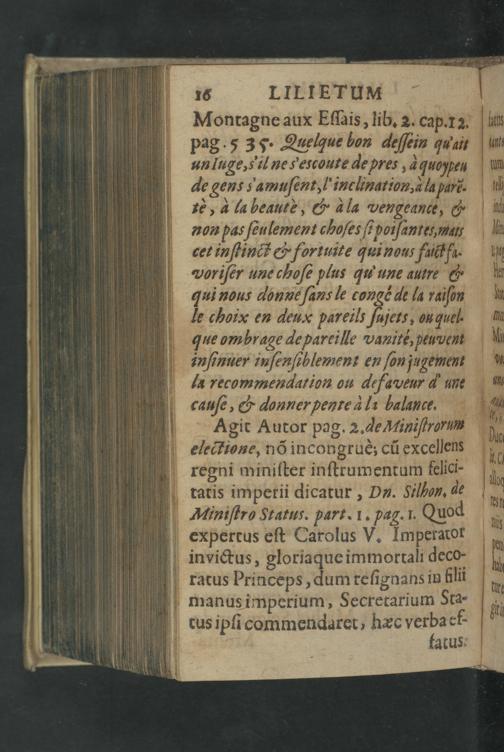 16 LILIETUM
Montagne aux Eſſais, lib. 2. cap. 12.
pag. 535. Quelque bon deſſein qu'ait
un Iuge, s'il ne s'escoute de pres, à quoy peu
de gens s'amuſent, l'inclination, à la parẽ-
tè, à la beautè, & à la vengeance, &
non pas ſeulement choſes ſi poiſantes, mais
cet inſtinct & fortuite qui nous faict fa-
voriſer une choſe plus qu'une autre &
qui nous donne ſans le congé de la raiſon
le choix en deux pareils ſujets, ou quel-
que ombrage de pareille vanité, peuvent
inſinuer inſenſiblement en ſon jugement
la recommendation ou defaveur d'une
cauſe, & donner pente à la balance.
Agit Autor pag. 2. de Miniſtrorum
electione, nõ incongruè; cũ excellens
regni miniſter inſtrumentum felici-
tatis imperii dicatur, Dn. Silhon. de
Miniſtro Status. part. 1. pag. 1. Quod
expertus eſt Carolus V. Imperator
invictus, gloriaque immortali deco-
ratus Princeps, dum reſignans in filii
manus imperium, Secretarium Sta-
tus ipſi commendaret, hæc verba ef-
fatus: